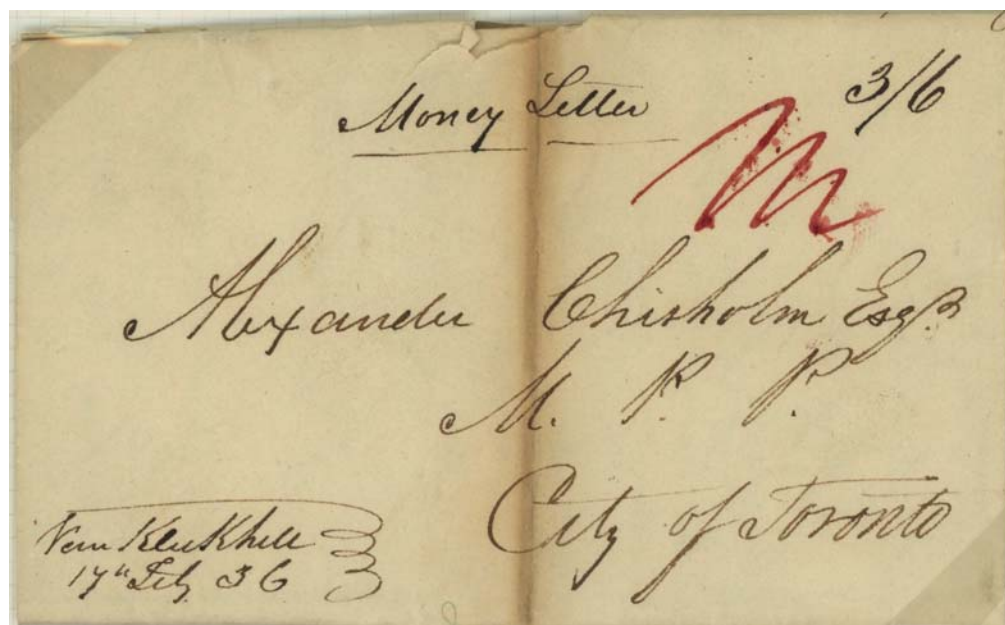 Money Letter 3/6
M
Alexander Chisholm Esqr
M. P. P.
City of Toronto
Van Kleek hill
17th Feby 36